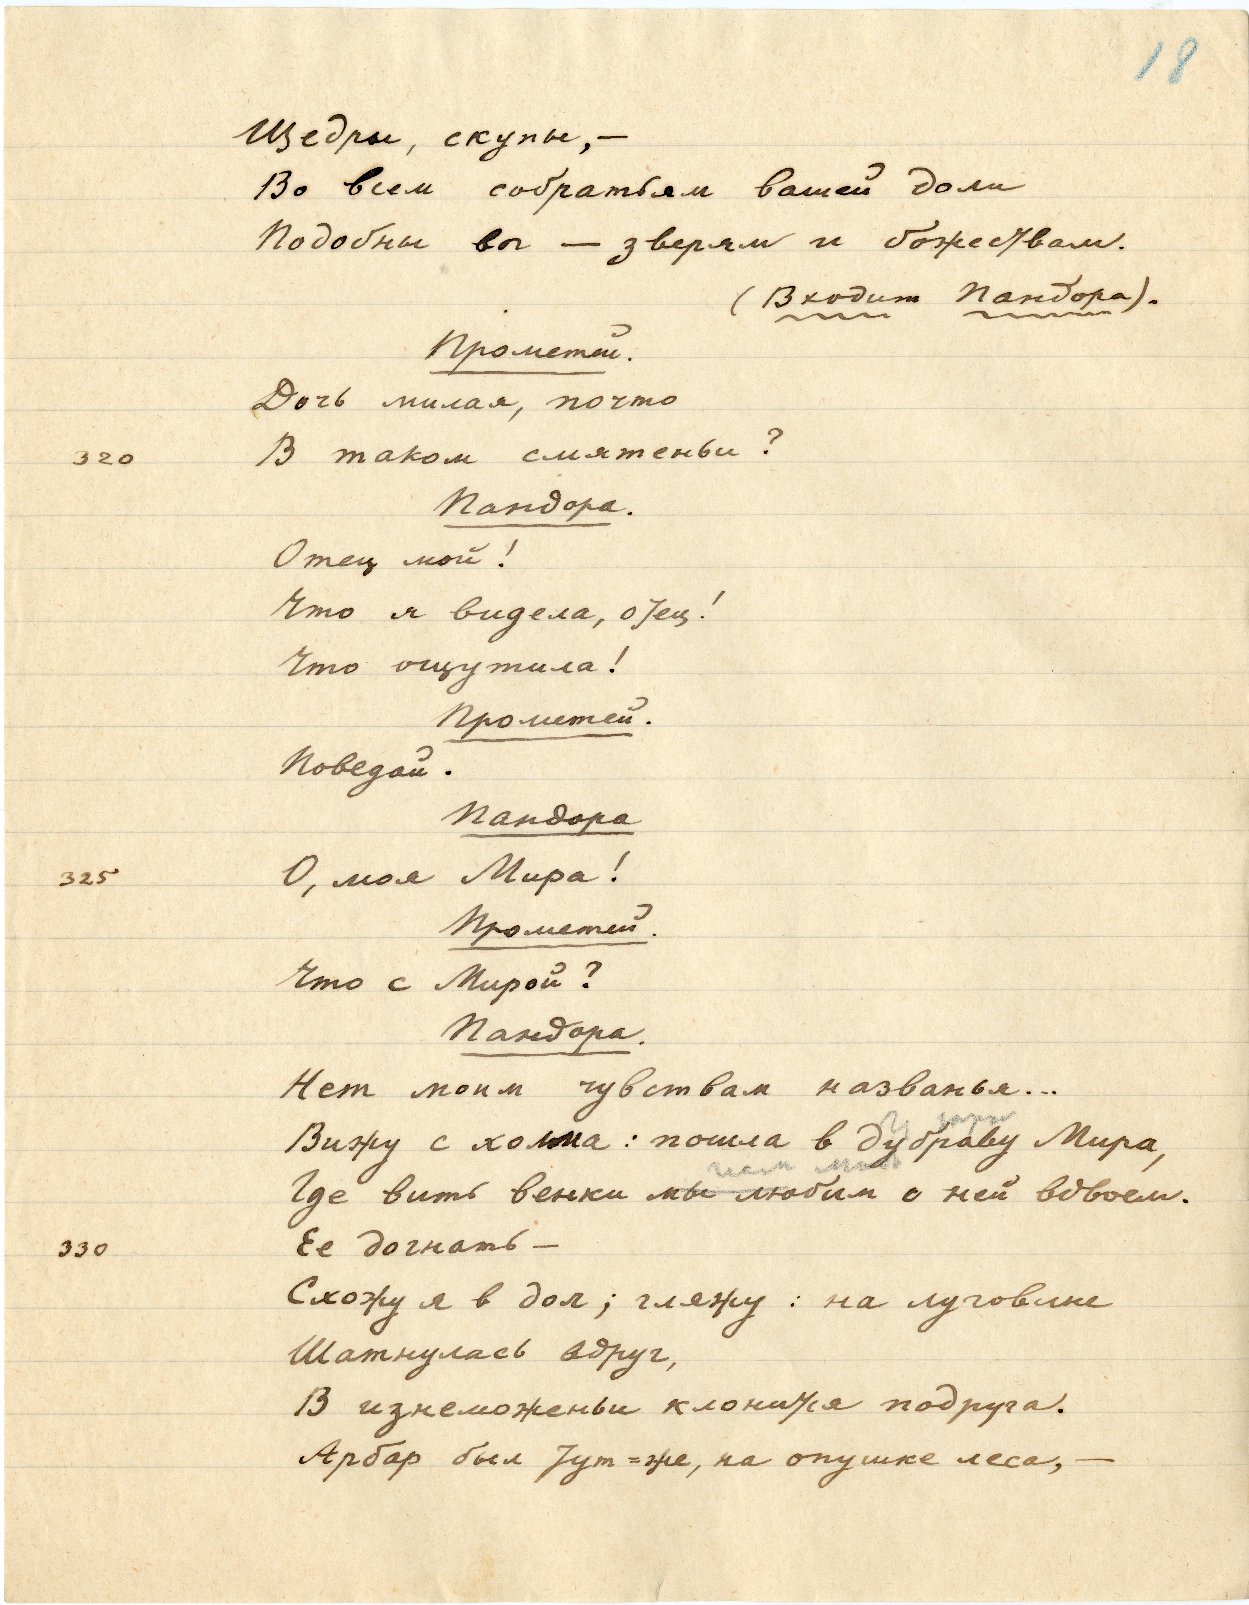 18
Щедры, скупы, —
Во всем собратьям вашей доли
Подобны вы — зверям и божествам.
(Входит Пандора).
Прометей.
Дочь милая, почто
320 В таком смятеньи?
Пандора.
Отец мой!
Что я видела, отец!
Что ощутила!
Прометей.
Поведай.
Пандора
325 О, моя Мира!
Прометей.
Что с Мирой?
Пандора.
Нет моим чувствам названья...
Вижу с холма: пошла в дубраву Мира,
нам мило
Где вить венки мы любим с ней вдвоем.
330 Ее догнать —
Схожу я в дол; гляжу: на луговине
Шатнулась вдруг,
В изнеможеньи клонится подруга.
Арбар был тут=же, на опушке леса, —